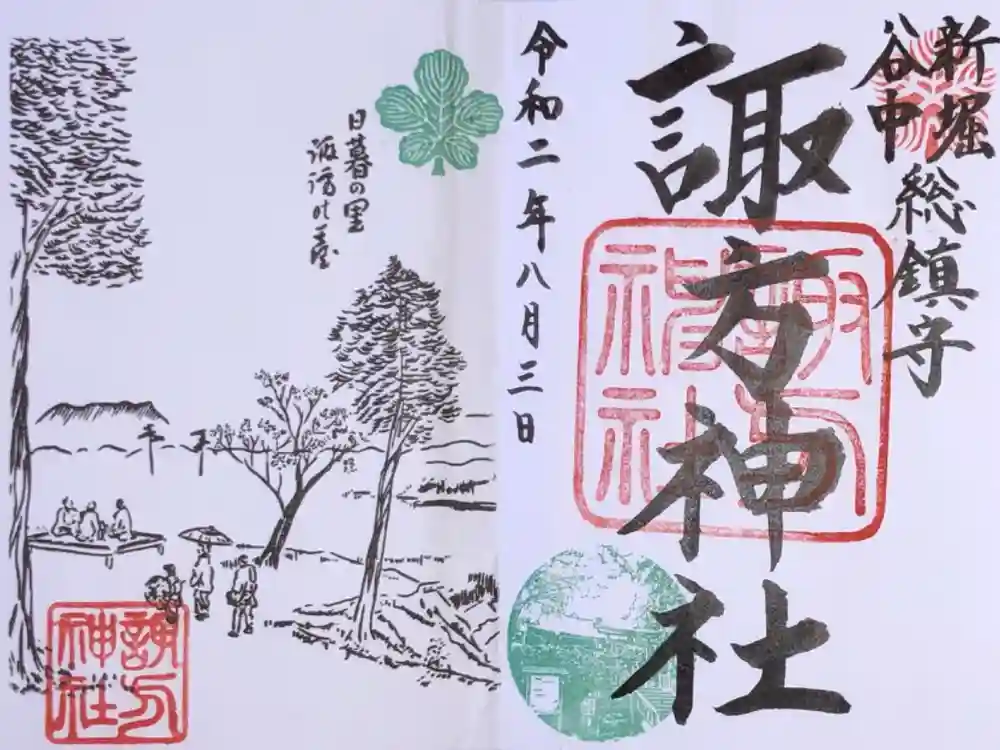 新堀
谷中
総鎮守
諏方神社
諏方
神社
令和二年八月三日
日暮の里
諏訪の台
諏方
神社